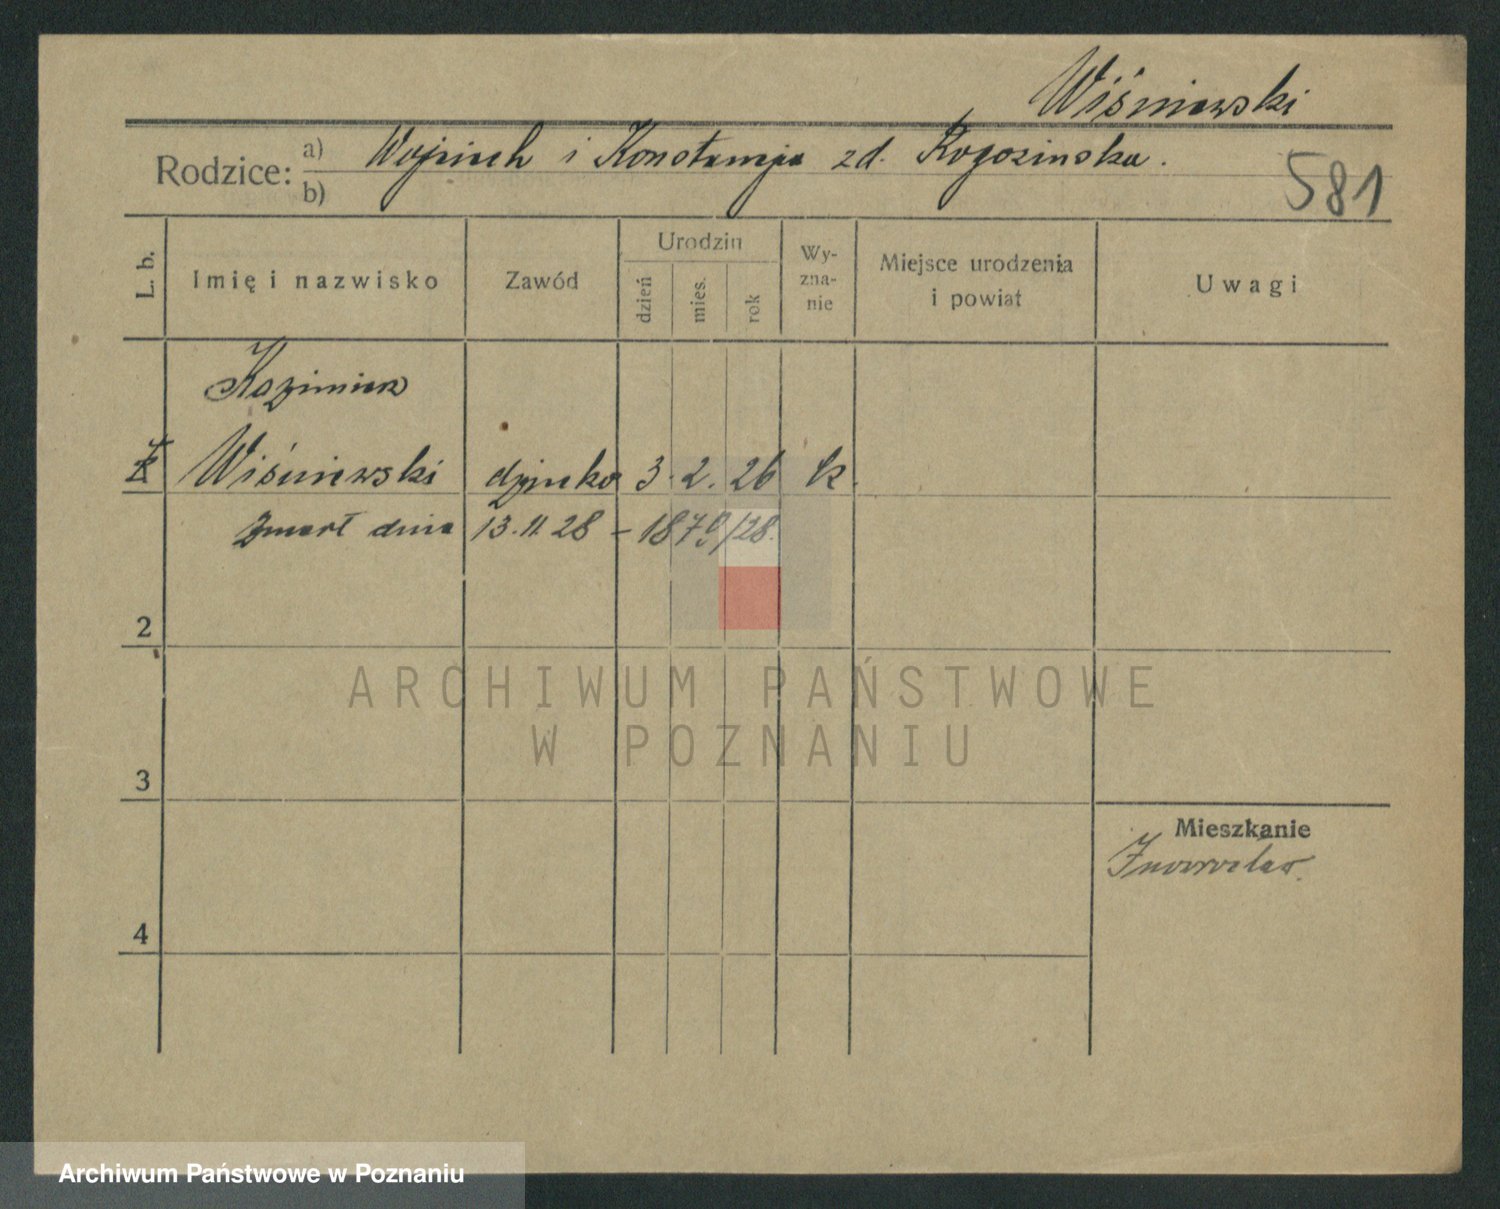 Wiśniewski
Rodzice: a) Wojciech i Konstancja zd. Rogozinska.
b)
581
L. b.
Imię i nazwisko
Zawód
Urodzin
dzień
mies.
rok
Wy-
zna-
nie
Miejsce urodzenia
i powiat
Uwagi
Kazimierz
Wiśniewski dziecko 3. 2. 26 k.
Zmarł dnia 13.11.28 – 1879/28.
2
ARCHIWUM PAŃSTWOWE
W POZNANIU
3
Mieszkanie
Inowrocław.
4
Archiwum Państwowe w Poznaniu